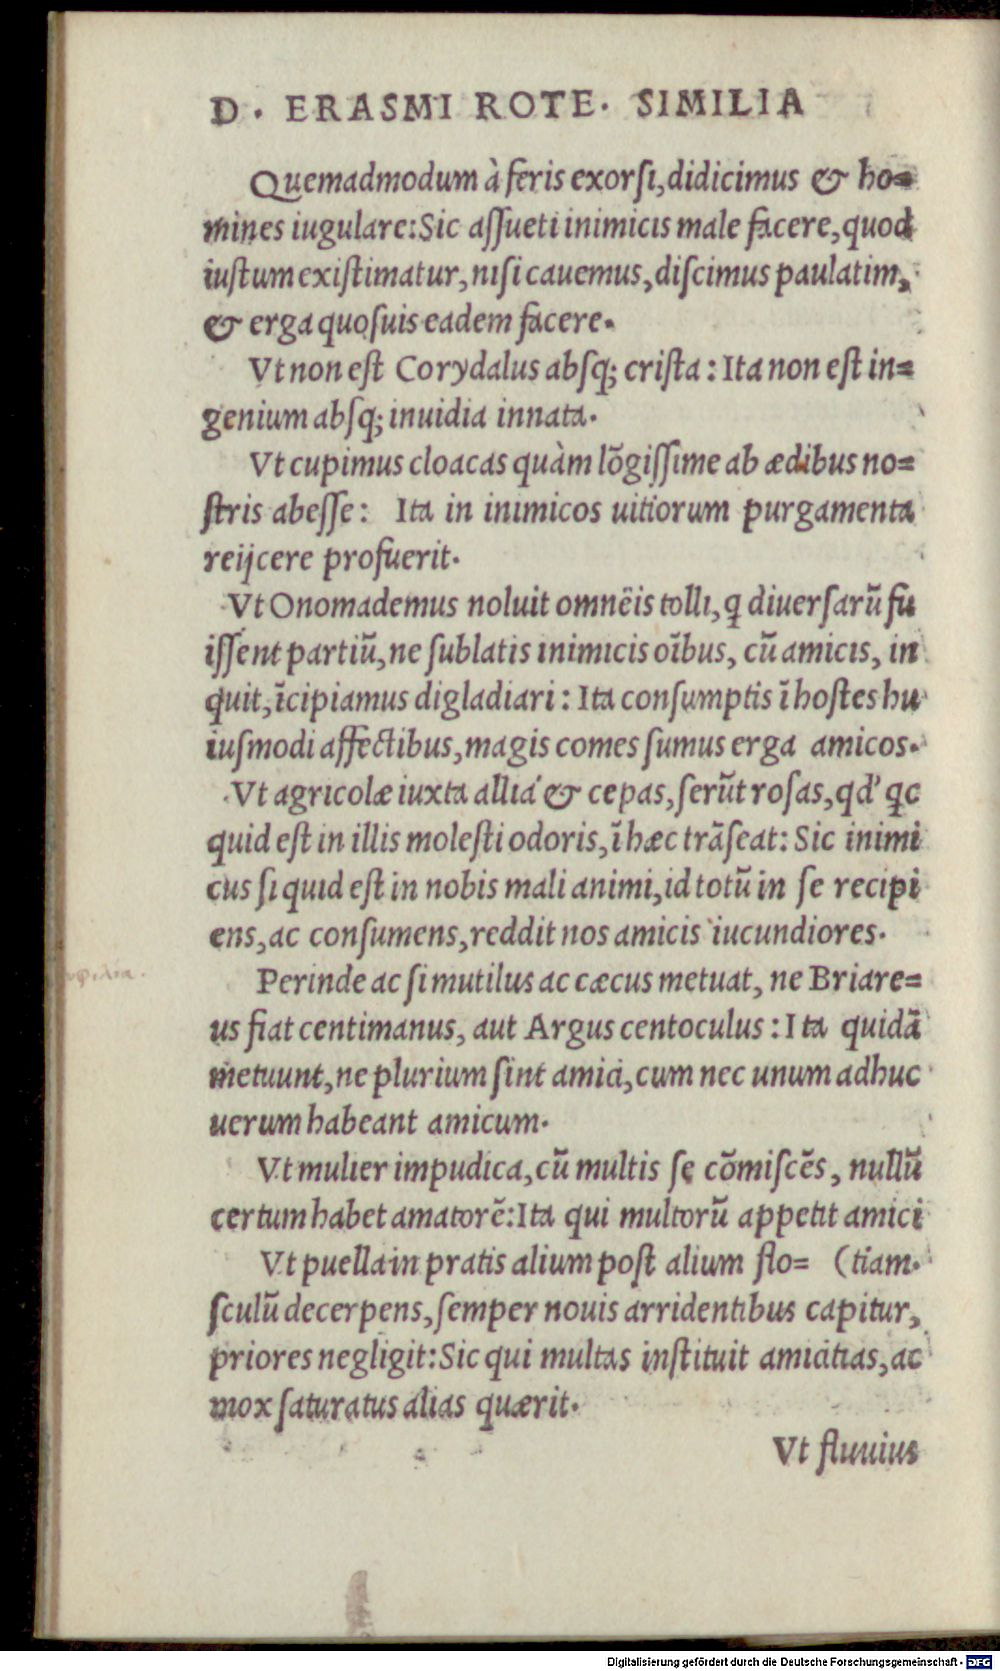 D. ERASMI ROTE. SIMILIA
Quemadmodum à feris exorſi, didicimus & ho=
mines iugulare: Sic aſſueti inimicis male facere, quod
iuſtum exiſtimatur, niſi cauemus, diſcimus paulatim,
& erga quoſuis eadem facere.
Vt non eſt Corydalus abſq; criſta: Ita non eſt in=
genium abſq; inuidia innata.
Vt cupimus cloacas quàm lõgiſſime ab ædibus no=
ſtris abeſſe: Ita in inimicos uitiorum purgamenta
reijcere profuerit.
Vt Onomademus noluit omnēis tolli, q diuerſarũ fu
iſſent partiũ, ne ſublatis inimicis oĩbus, cũ amicis, in
quit, ĩcipiamus digladiari: Ita conſumptis ĩ hoſtes hu
iuſmodi affectibus, magis comes ſumus erga amicos.
Vt agricolæ iuxta allia & cepas, ſerũt roſas, qd' qc
quid eſt in illis moleſti odoris, ĩ hæc trãſeat: Sic inimi
cus ſi quid eſt in nobis mali animi, id totũ in ſe recipi
ens, ac conſumens, reddit nos amicis iucundiores.
Perinde ac ſi mutilus ac cæcus metuat, ne Briare=
us fiat centimanus, aut Argus centoculus: Ita quidã
metuunt, ne plurium ſint amici, cum nec unum adhuc
uerum habeant amicum.
Vt mulier impudica, cũ multis ſe cõmiſcẽs, nullũ
certum habet amatorẽ: Ita qui multorũ appetit amici
Vt puella in pratis alium poſt alium flo= (tiam.
ſculũ decerpens, ſemper nouis arridentibus capitur,
priores negligit: Sic qui multas inſtituit amicitias, ac
mox ſaturatus alias quærit.
Vt fluuius
Digitalisierung gefördert durch die Deutsche Forschungsgemeinschaft - DFG